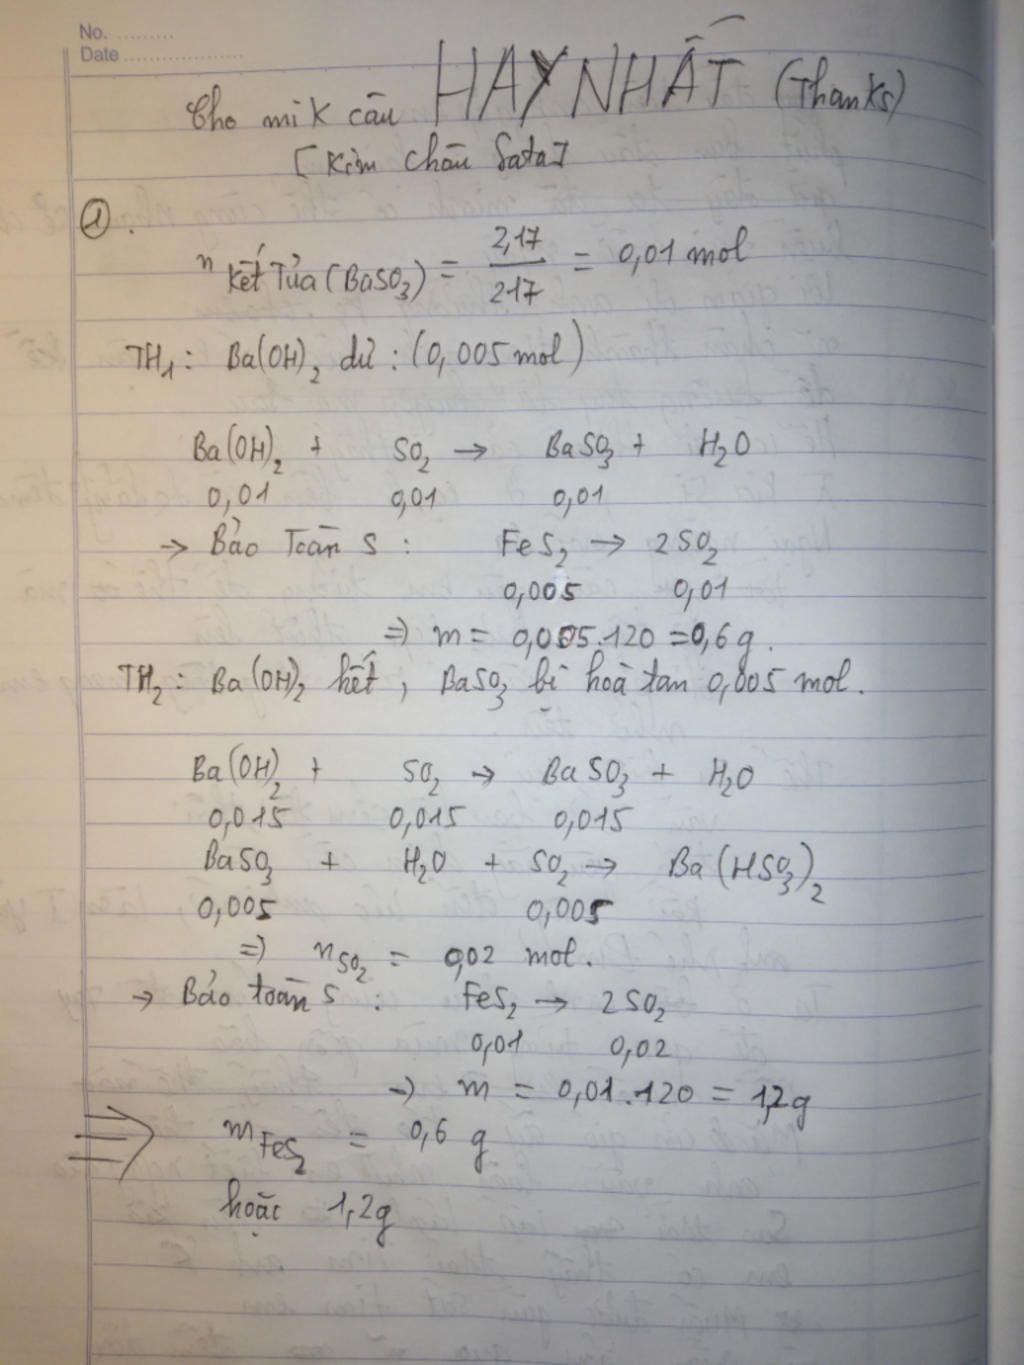 No. ..........
Date .....................
Cho mik câu HAY NHẤT (Thanks)
[Kim Châu Sata]
①.
n kết Tủa (BaSO₃) = 2,17/217 = 0,01 mol
TH₁ : Ba(OH)₂ dư : (0,005 mol)
Ba(OH)₂ + SO₂ → BaSO₃ + H₂O
0,01 0,01 0,01
→ Bảo Toàn S : FeS₂ → 2SO₂
0,005 0,01
⇒ m = 0,005.120 = 0,6 g.
TH₂ : Ba(OH)₂ hết, BaSO₃ bị hoà tan 0,005 mol.
Ba(OH)₂ + SO₂ → BaSO₃ + H₂O
0,015 0,015 0,015
BaSO₃ + H₂O + SO₂ → Ba(HSO₃)₂
0,005 0,005
⇒ nSO₂ = 0,02 mol.
→ Bảo toàn S : FeS₂ → 2SO₂
0,01 0,02
→ m = 0,01.120 = 1,2g
⇒ mFeS₂ = 0,6 g
hoặc 1,2g